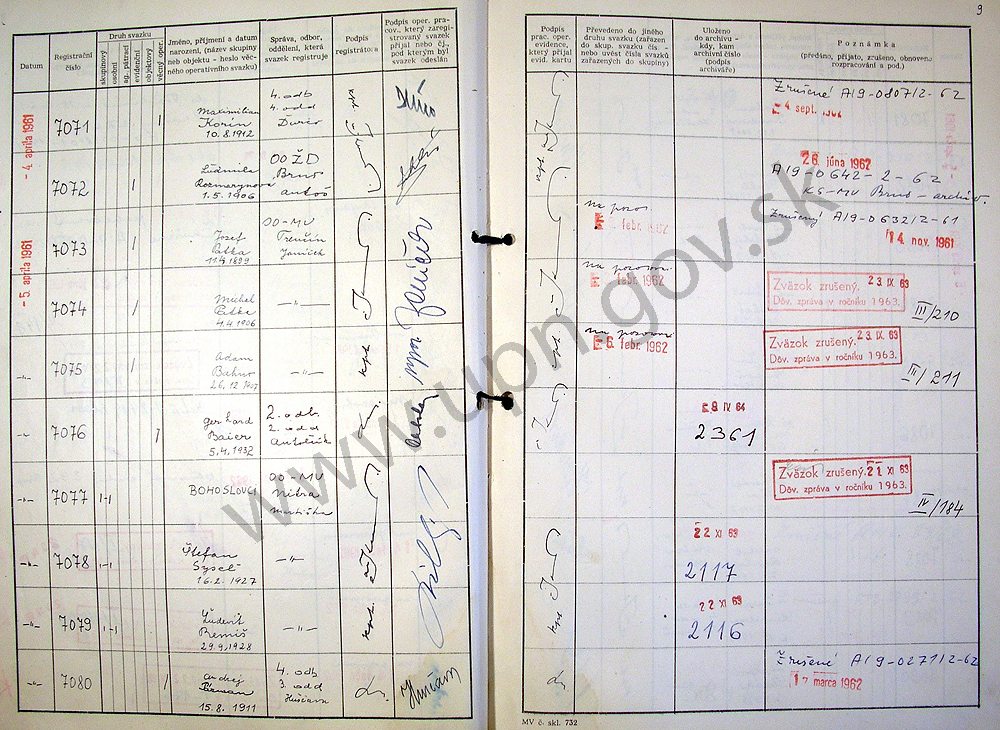 9
Datum
Registrační
číslo
Druh svazku
skupinový
osobní
ag. pátrací
evidenční
objektový
věcný oper.
Jméno, příjmení a datum
narození, (název skupiny
neb objektu - heslo věc-
ného operativního svazku)
Správa, odbor,
oddělení, která
svazek registruje
Podpis
registrátora
Podpis oper. pra-
cov., který zaregi-
strovaný svazek
přijal nebo čj.,
pod kterým byl
svazek odeslán
Podpis
prac. oper.
evidence,
který přijal
evid. kartu
Převedeno do jiného
druhu svazku (zařazen
do skup. svazku čís. -
nebo uvést čísla svazků
zařazených do skupiny)
Uloženo
do archivu -
kdy, kam
archivní číslo
(podpis
archiváře)
Poznámka
(předáno, přijato, zrušeno, obnoveno
rozpracování a pod.)
- 4. apríla 1961
7071
Maximilian
Korín
10.8.1912
4. odb
4. odd
Ďurčo
Zrušené A19-0807/2-62
4. sept. 1962
7072
Ľudmila
1.5.1906
OO ŽD
Brno
26. júna 1962
A19-0642-2-62
KS-MV Brno - archív.
- 5. apríla 1961
7073
Jozef
Patka
OO-MV
Trenčín
Janíček
na pozor.
febr. 1962
Zrušený A19-0632/2-61
14. nov. 1961
7074
Michal
Patka
4.4.1906
-"-
na pozorom
febr. 1962
Zväzok zrušený. 23. IX. 63
Dôv. zpráva v ročníku 1963.
III/210
-"-
7075
Adam
-"-
na pozorom
6. febr. 1962
Zväzok zrušený. 23. IX. 63
Dôv. zpráva v ročníku 1963.
III/211
-"-
7076
Gerhard
Baier
5.4.1932
2. odb.
2. odd
9 IV 64
2361
-"-
7077
BOHOSLOVCI
OO-MV
Nitra
Zväzok zrušený. 21. XI 63
Dôv. zpráva v ročníku 1963.
IV/184
-"-
7078
Štefan
Sysel
16.2.1927
-"-
22 XI 63
2117
-"-
7079
Ľudevít
Remiš
29.9.1928
-"-
22 XI 63
2116
-"-
7080
Andrej
15.8.1911
4. odb
3. odd
Zrušené A19-0271/2-62
17 marca 1962
MV č. skl. 732
www.upn.gov.sk